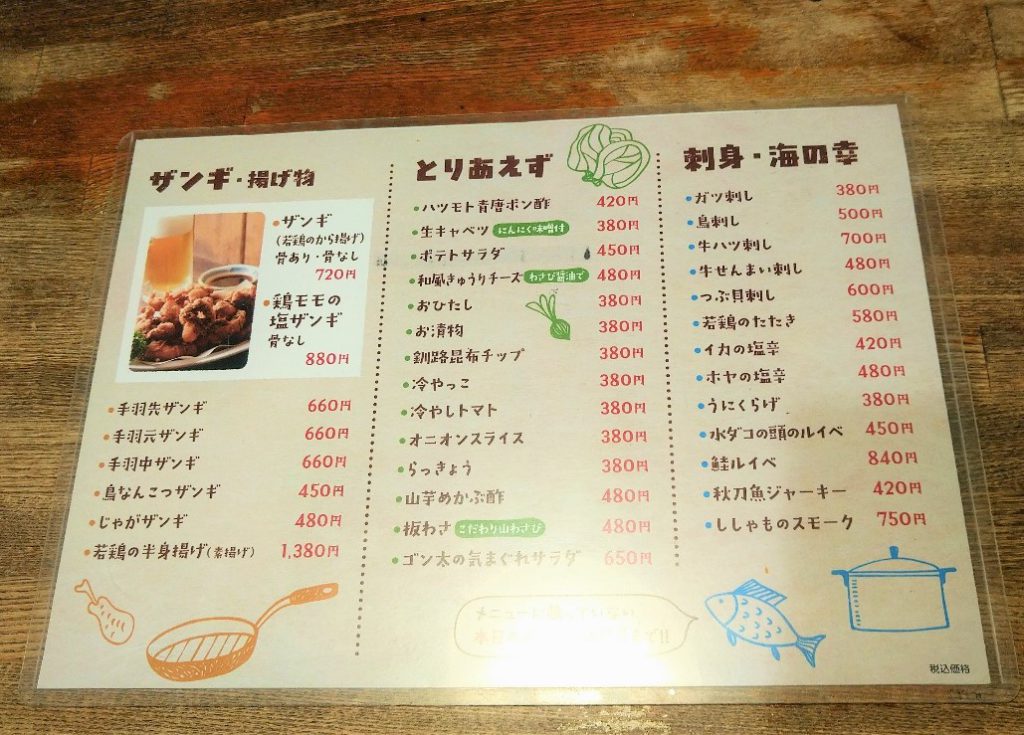 ザンギ・揚げ物
・ザンギ
(若鶏のから揚げ)
骨あり・骨なし
720円
・鶏モモの
塩ザンギ
骨なし
880円
・手羽先ザンギ 660円
・手羽元ザンギ 660円
・手羽中ザンギ 660円
・鳥なんこつザンギ 450円
・じゃがザンギ 480円
・若鶏の半身揚げ(素揚げ) 1,380円
とりあえず
・ハツモト青唐ポン酢 420円
・生キャベツ にんにく味噌付 380円
・ポテトサラダ 450円
・和風きゅうりチーズ わさび醤油で 480円
・おひたし 380円
・お漬物 380円
・釧路昆布チップ 380円
・冷やっこ 380円
・冷やしトマト 380円
・オニオンスライス 380円
・らっきょう 380円
・山芋めかぶ酢 480円
・板わさ こだわり山わさび 480円
・ゴン太の気まぐれサラダ 650円
メニューに
本日の まで!!
刺身・海の幸
・ガツ刺し 380円
・鳥刺し 500円
・牛ハツ刺し 700円
・牛せんまい刺し 480円
・つぶ貝刺し 600円
・若鶏のたたき 580円
・イカの塩辛 420円
・ホヤの塩辛 480円
・うにくらげ 380円
・水ダコの頭のルイベ 450円
・鮭ルイベ 840円
・秋刀魚ジャーキー 420円
・ししゃものスモーク 750円
税込価格